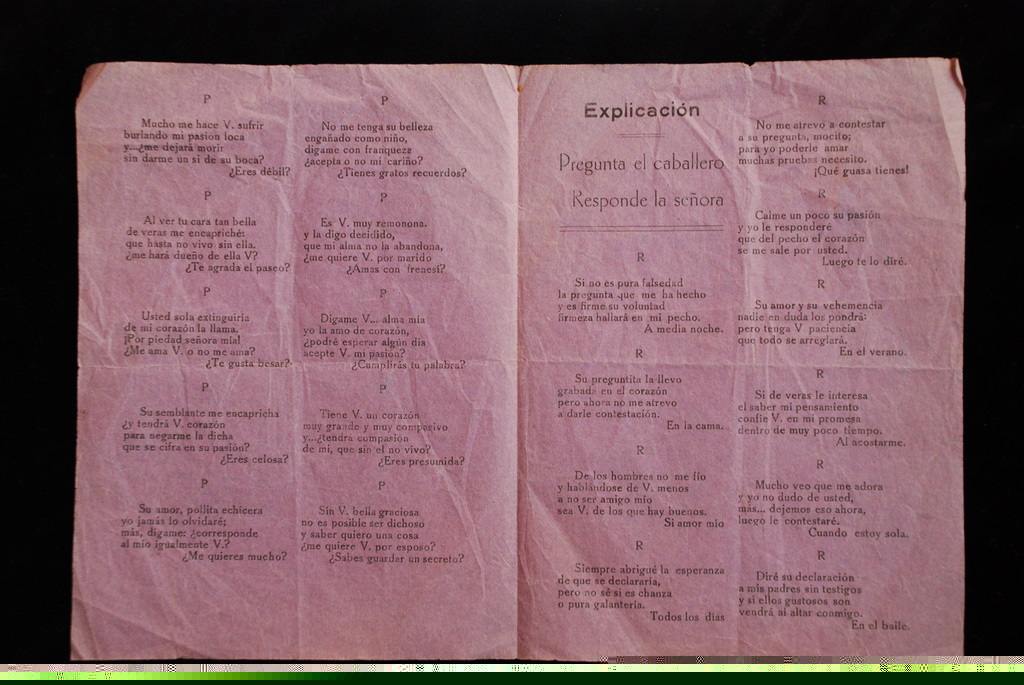 P
Mucho me hace V. sufrir
burlando mi pasión loca
y...¿me dejará morir
sin darme un si de su boca?
¿Eres débil?
P
Al ver tu cara tan bella
de veras me encapriché:
que hasta no vivo sin ella.
¿me hará dueño de ella V?
¿Te agrada el paseo?
P
Usted sola extinguiria
de mi corazón la llama.
¡Por piedad señora mía!
¿Me ama V. o no me ama?
¿Te gusta besar?
P
Su semblante me encapricha
¿y tendrá V. corazón
para negarme la dicha
que se cifra en su pasión?
¿Eres celosa?
P
Su amor, pollita echicera
yo jamás lo olvidaré;
más, digame: ¿corresponde
al mio igualmente V.?
¿Me quieres mucho?
P
No me tenga su belleza
engañado como niño,
digame con franqueza
¿acepta o no mi cariño?
¿Tienes gratos recuerdos?
P
Es V. muy remonona.
y la digo decidido,
que mi alma no la abandona,
¿me quiere V. por marido
¿Amas con frenesí?
P
Digame V... alma mía
yo la amo de corazón,
¿podré esperar algún día
acepte V. mi pasión?
¿Cumplirás tu palabra?
P
Tiene V. un corazón
muy grande y muy compasivo
y...¿tendra compasión
de mi, que sin el no vivo?
¿Eres presumida?
P
Sin V. bella graciosa
no es posible ser dichoso
y saber quiero una cosa
¿me quiere V. por esposo?
¿Sabes guardar un secreto?
Explicación
Pregunta el caballero
Responde la señora
R
Si no es pura falsedad
la pregunta que me ha hecho
y es firme su voluntad
firmeza hallará en mi pecho.
A media noche.
R
Su preguntita la llevo
grabada en el corazón
pero ahora no me atrevo
a darle contestación.
En la cama.
R
De los hombres no me fío
y hablándose de V. menos
a no ser amigo mío
sea V. de los que hay buenos.
Si amor mio
R
Siempre abrigué la esperanza
de que se declararía,
pero no sé si es chanza
o pura galantería.
Todos los días
R
No me atrevo a contestar
a su pregunta, mocito;
para yo poderle amar
muchas pruebas necesito.
¡Qué guasa tienes!
R
Calme un poco su pasión
y yo le responderé
que del pecho el corazón
se me sale por usted.
Luego te lo diré.
R
Su amor y su vehemencia
nadie en duda los pondrá:
pero tenga V paciencia
que todo se arreglará.
En el verano.
R
Si de veras le interesa
el saber mi pensamiento
confie V. en mi promesa
dentro de muy poco tiempo.
Al acostarme.
R
Mucho veo que me adora
y yo no dudo de usted,
más... dejemos eso ahora,
luego le contestaré.
Cuando estoy sola.
R
Diré su declaración
a mis padres sin testigos
y si ellos gustosos son
vendrá al altar conmigo.
En el baile.